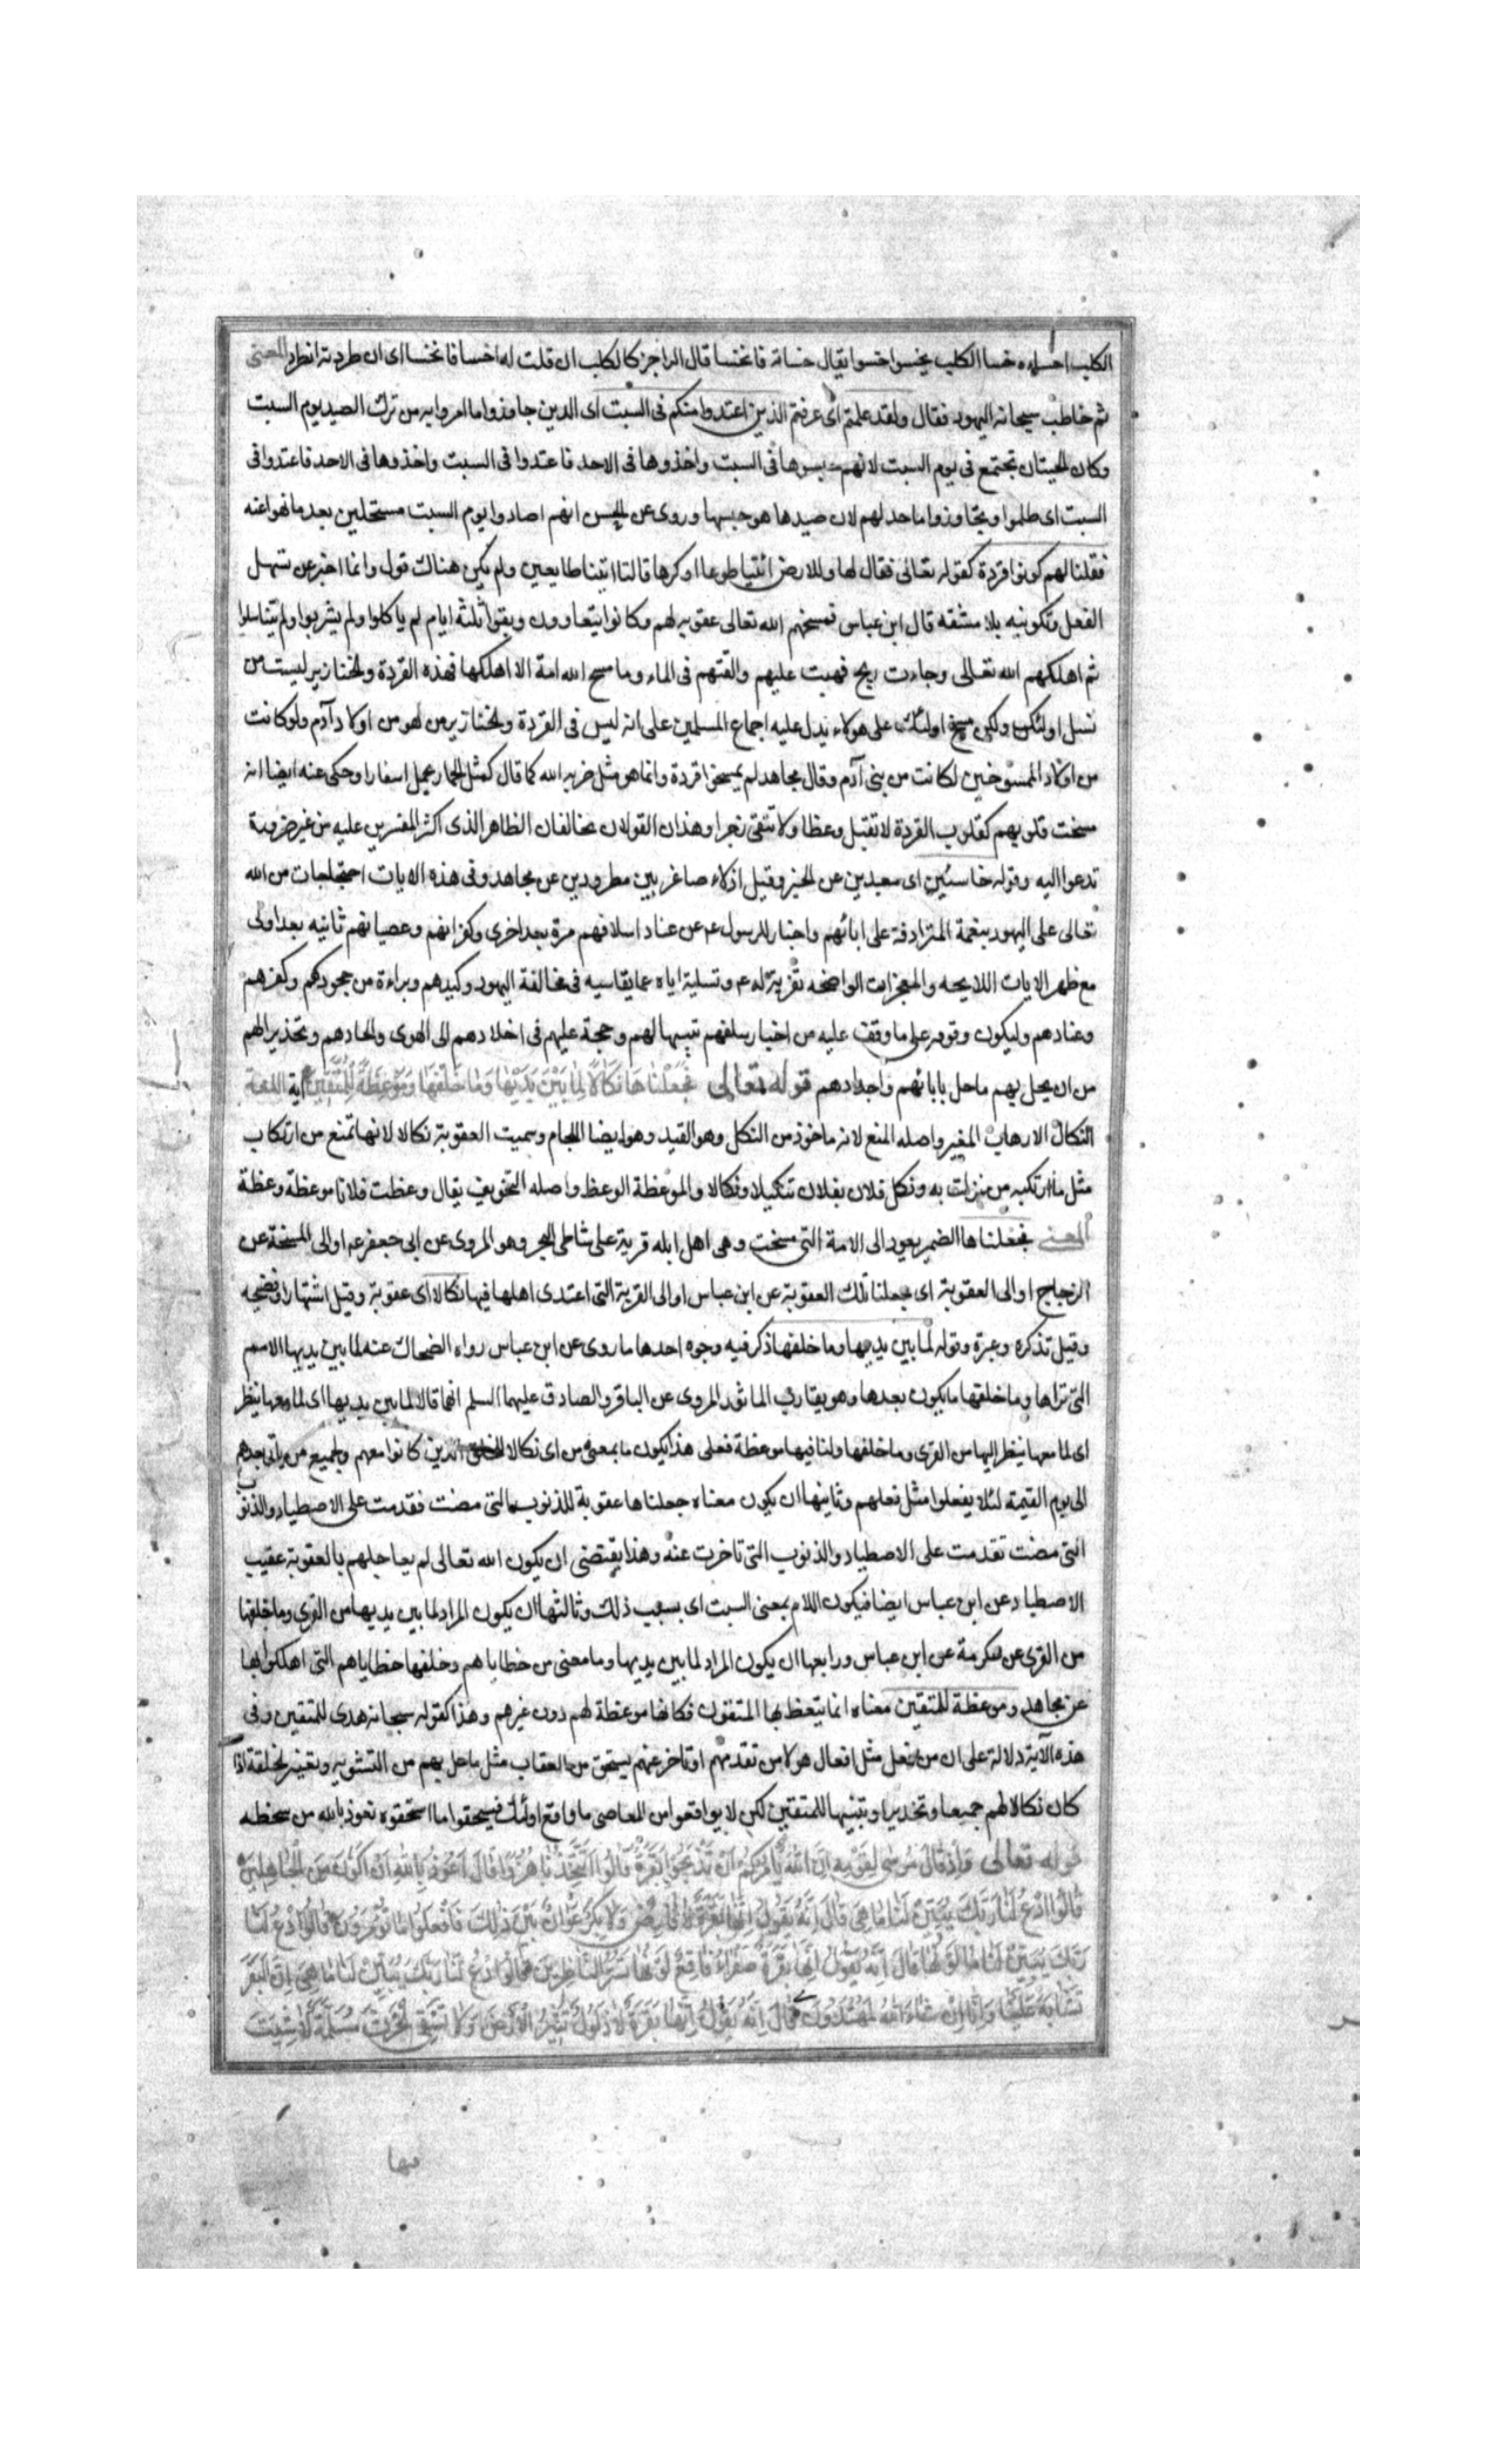 الكلب اخساوه خسا الكلب يخسوا خسوا يقال خساته فانخسا قال الراجز كالكلب ان قلت له اخسا فانخسا اى ان طردته انطرد المعنى
ثم خاطب سبحانه اليهود فقال ولقد علمتم اى عرفتم الذين اعتدوا منكم فى السبت اى الذين جاوذوا ما امروا به من ترك الصيد يوم السبت
وكان الحيتان تجتمع فى يوم السبت لانهم حبسوها فى السبت واخذوها فى الاحد فاعتدوا فى السبت واخذوها فى الاحد فاعتدوا فى
السبت اى ظلموا وتجاوذوا ما حد لهم لان صيدها هو حبسها وروى عن الحسن انهم اصادوا يوم السبت مستحلين بعد ما نهوا عنه
فقلنا لهم كونوا قردة كقوله تعالى فقال لها وللارض ائتيا طوعا اوكرها قالتا اتينا طايعين ولم يكن هناك قول وانما اخبر عن تسهل
الفعل وتكوينه بلا مشقه قال ابن عباس فمسخهم الله تعالى عقوبه لهم وكانوا يتعاوون وبقوا ثلثة ايام لم ياكلوا ولم يشربوا ولم يتناسلوا
ثم اهلكهم الله تعالى وجاءت ريح فهبت عليهم والقتهم فى الماء وما مسخ الله امة الا اهلكها فهذه القردة والخنازير ليست من
نسل اولئك ولكن مسخ اولئك على هولاء يدل عليه اجماع المسلمين على انه ليس فى القردة والخنازير من هو من اولاد آدم ولو كانت
من اولاد الممسوخين لكانت من بنى آدم وقال مجاهد لم يمسخوا قردة وانما هو مثل ضربه الله كما قال كمثل الحمار يحمل اسفارا وحكى عنه ايضا انه
مسخت قلوبهم كقلوب القردة لا تقبل وعظا ولا تتقى زجرا وهذان القولان يخالفان الظاهر الذى اكثر المفسرين عليه من غير ضرورة
تدعوا اليه وقوله خاسئين اى مبعدين عن الخير وقيل اذلاء صاغرين مطرودين عن مجاهد وفى هذه الايات احتجاجات من الله
تعالى على اليهود بنعمة المترادفة على ابائهم واخبار للرسول عم عن عناد اسلافهم مرة بعد اخرى وكفرانهم وعصيانهم ثانيه بعد اولى
مع ظهر الايات اللايحه والمعجزات الواضحه تعزية له عم وتسلية اياه عما يقاسيه فى مخالفة اليهود وكيدهم وبراءة من جحودكم وكفرهم
وعنادهم وليكون وقوفه على ما وقف عليه من اخبار سلفهم تنبيها لهم وحجة عليهم فى اخلادهم الى الهوى والحادهم وتحذيرا لهم
من ان يحل بهم ما حل بابائهم واجدادهم قوله تعالى فجعلناها نكالا لما بين يديها وما خلفها وموعظة للمتقين آية اللغة
النكال الارهاب المغير واصله المنع لانه ماخوذ من النكل وهو القيد وهو ايضا اللجام وسميت العقوبة نكالا لانها تمنع من ارتكاب
مثل ما ارتكبه من نزلت به ونكل فلان بفلان تنكيلا ونكالا والموعظة الوعظ واصله التخويف يقال وعظت فلانا موعظة وعظة
المعنى فجعلناها الضمير يعود الى الامة التى مسخت وهى اهل ايله قرية على شاطى البحر وهو المروى عن ابى جعفر عم او الى المسخة عن
الزجاج او الى العقوبة اى فجعلنا تلك العقوبة عن ابن عباس او الى القرية التى اعتدى اهلها فيها نكالا اى عقوبة وقيل اشتهارا وفضيحه
وقيل تذكره وعبرة وقوله لما بين يديها وما خلفها ذكر فيه وجوه احدها ما روى عن ابن عباس رواه الضحاك عنه لما بين يديها الامم
التى تراها وما خلفها ما يكون بعدها وهو يقارب الماثور المروى عن الباقر والصادق عليهما السلم انهما قالا لما بين يديها اى لما معها ينظر
اى لما معها ينظر اليها من القرى وما خلفها ولنا فيها موعظة فعلى هذا يكون ما بمعنى من اى نكالا للخلق الذين كانوا معهم ولجميع من ياتى بعدهم
الى يوم القيمة لئلا يفعلوا مثل فعلهم وثانيها ان يكون معناه جعلناها عقوبة للذنوب التى مضت فقدمت على الاصطياد والذنوب
التى مضت تقدمت على الاصطياد والذنوب التى تاخرت عنه وهذا يقتضى ان يكون الله تعالى لم يعاجلهم بالعقوبة عقيب
الاصطياد عن ابن عباس ايضا فيكون اللام بمعنى السبت اى بسبب ذلك وثالثها ان يكون المراد لما بين يديها من القرى وما خلفها
من القرى عن عكرمة عن ابن عباس ورابعها ان يكون المراد لما بين يديها وما مضى من خطاياهم وخلفها خطاياهم التى اهلكوا بها
عن مجاهد وموعظة للمتقين معناه انما يتعظ بها المتقون فكانها موعظة لهم دون غيرهم وهذا كقوله سبحانه هدى للمتقين وفى
هذه الآية دلالة على ان من فعل مثل افعال هولا من تقدمهم او تاخر عنهم يستحق من العقاب مثل ما حل بهم من التشويه وتغيير الخلقة اذا
كان نكالا لهم جميعا وتحذيرا وتنبيها للمتقين لكى لا يواقعوا من المعاصى ما واقع اولئك فيستحقوا ما استحقوه نعوذ بالله من سخطه
قوله تعالى وَاِذْ قَالَ مُوسٰى لِقَوْمِهِ اِنَّ اللهَ يَاْمُرُكُمْ اَنْ تَذْبَحُوا بَقَرَةً قَالُوا اَتَتَّخِذُنَا هُزُوًا قَالَ اَعُوذُ بِاللهِ اَنْ اَكُونَ مِنَ الْجَاهِلِينَ
قَالُوا ادْعُ لَنَا رَبَّكَ يُبَيِّنْ لَنَا مَا هِىَ قَالَ اِنَّهُ يَقُولُ اِنَّهَا بَقَرَةٌ لَا فَارِضٌ وَلَا بِكْرٌ عَوَانٌ بَيْنَ ذٰلِكَ فَافْعَلُوا مَا تُؤْمَرُونَ قَالُوا ادْعُ لَنَا
رَبَّكَ يُبَيِّنْ لَنَا مَا لَوْنُهَا قَالَ اِنَّهُ يَقُولُ اِنَّهَا بَقَرَةٌ صَفْرَاءُ فَاقِعٌ لَوْنُهَا تَسُرُّ النَّاظِرِينَ قَالُوا ادْعُ لَنَا رَبَّكَ يُبَيِّنْ لَنَا مَا هِىَ اِنَّ الْبَقَرَ
تَشَابَهَ عَلَيْنَا وَاِنَّا اِنْ شَاءَ اللهُ لَمُهْتَدُونَ قَالَ اِنَّهُ يَقُولُ اِنَّهَا بَقَرَةٌ لَا ذَلُولٌ تُثِيرُ الْاَرْضَ وَلَا تَسْقِى الْحَرْثَ مُسَلَّمَةٌ لَا شِيَتَ
فيها